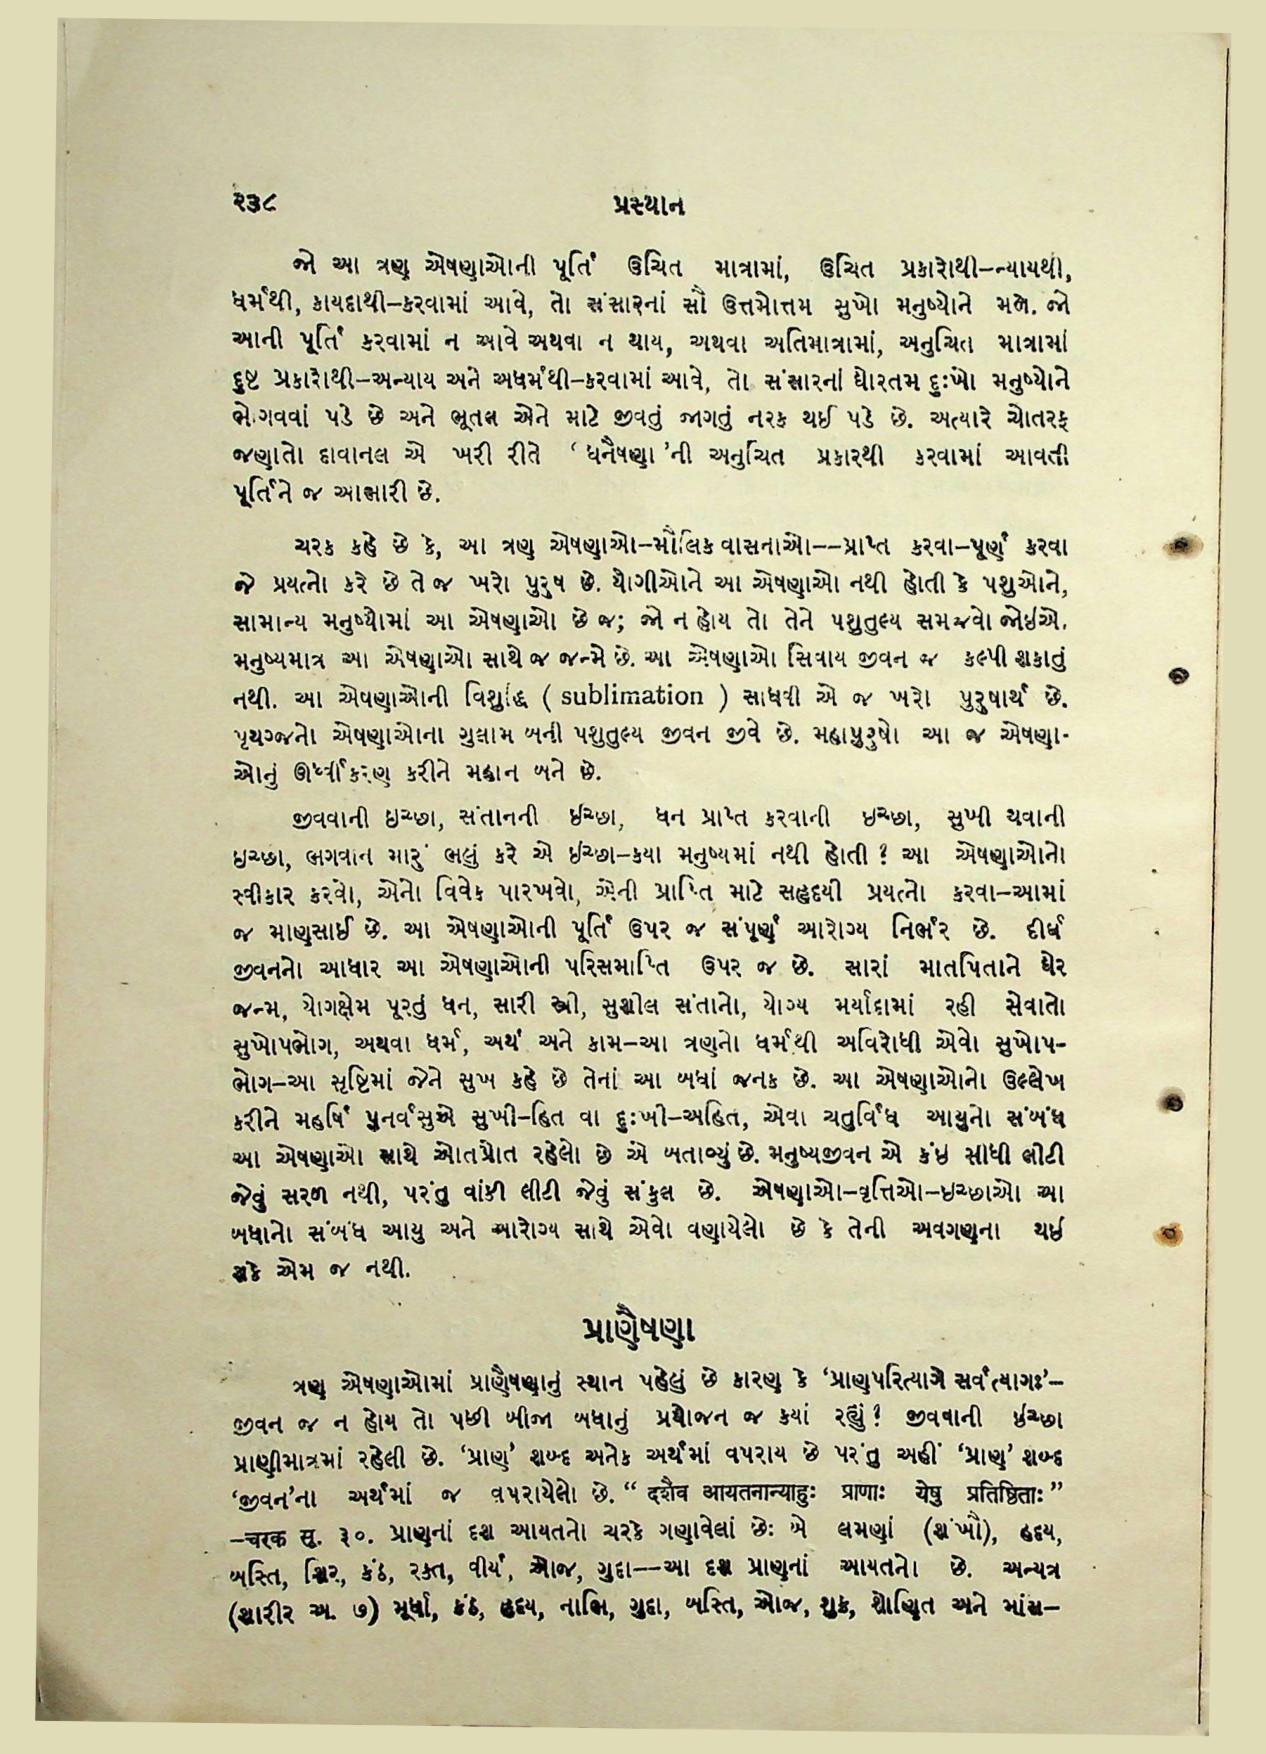 ૨૩૮ પ્રસ્થાન
જો આ ત્રણ એષણાઓની પૂર્તિ ઉચિત માત્રામાં, ઉચિત પ્રકારોથી–ન્યાયથી,
ધર્મથી, કાયદાથી–કરવામાં આવે, તો સંસારનાં સૌ ઉત્તમોત્તમ સુખો મનુષ્યોને મળે. જો
આની પૂર્તિ કરવામાં ન આવે અથવા ન થાય, અથવા અતિમાત્રામાં, અનુચિત માત્રામાં
દુષ્ટ પ્રકારોથી–અન્યાય અને અધર્મથી–કરવામાં આવે, તો સંસારનાં ઘોરતમ દુઃખો મનુષ્યોને
ભોગવવાં પડે છે અને ભૂતલ એને માટે જીવતું જાગતું નરક થઈ પડે છે. અત્યારે ચોતરફ
જણાતો દાવાનલ એ ખરી રીતે ‘ધનૈષણા’ની અનુચિત પ્રકારથી કરવામાં આવતી
પૂર્તિને જ આભારી છે.
ચરક કહે છે કે, આ ત્રણ એષણાઓ–મૌલિક વાસનાઓ––પ્રાપ્ત કરવા–પૂર્ણ કરવા
જે પ્રયત્નો કરે છે તે જ ખરો પુરુષ છે. યોગીઓને આ એષણાઓ નથી હોતી કે પશુઓને,
સામાન્ય મનુષ્યોમાં આ એષણાઓ છે જ; જો ન હોય તો તેને પશુતુલ્ય સમજવો જોઇએ.
મનુષ્યમાત્ર આ એષણાઓ સાથે જ જન્મે છે. આ એષણાઓ સિવાય જીવન જ કલ્પી શકાતું
નથી. આ એષણાઓની વિશુદ્ધિ ( sublimation ) સાધવી એ જ ખરો પુરુષાર્થ છે.
પૃથગ્જનો એષણાઓના ગુલામ બની પશુતુલ્ય જીવન જીવે છે. મહાપુરુષો આ જ એષણા-
ઓનું ઊર્ધ્વીકરણ કરીને મહાન બને છે.
જીવવાની ઇચ્છા, સંતાનની ઈચ્છા, ધન પ્રાપ્ત કરવાની ઈચ્છા, સુખી થવાની
ઇચ્છા, ભગવાન મારું ભલું કરે એ ઈચ્છા–કયા મનુષ્યમાં નથી હોતી ? આ એષણાઓનો
સ્વીકાર કરવો, એનો વિવેક પારખવો, એની પ્રાપ્તિ માટે સહૃદયી પ્રયત્નો કરવા–આમાં
જ માણસાઈ છે. આ એષણાઓની પૂર્તિ ઉપર જ સંપૂર્ણ આરોગ્ય નિર્ભર છે. દીર્ઘ
જીવનનો આધાર આ એષણાઓની પરિસમાપ્તિ ઉપર જ છે. સારાં માતપિતાને ઘેર
જન્મ, યોગક્ષેમ પૂરતું ધન, સારી સ્ત્રી, સુશીલ સંતાનો, યોગ્ય મર્યાદામાં રહી સેવાતો
સુખોપભોગ, અથવા ધર્મ, અર્થ અને કામ–આ ત્રણનો ધર્મથી અવિરોધી એવો સુખોપ-
ભોગ–આ સૃષ્ટિમાં જેને સુખ કહે છે તેનાં આ બધાં જનક છે. આ એષણાઓનો ઉલ્લેખ
કરીને મહર્ષિ પુનર્વસુએ સુખી–હિત વા દુઃખી–અહિત, એવા ચતુર્વિધ આયુનો સંબંધ
આ એષણાઓ સાથે ઓતપ્રોત રહેલો છે એ બતાવ્યું છે. મનુષ્યજીવન એ કંઇ સીધી લીટી
જેવું સરળ નથી, પરંતુ વાંકી લીટી જેવું સંકુલ છે. એષણાઓ–વૃત્તિઓ–ઇચ્છાઓ આ
બધાનો સંબંધ આયુ અને આરોગ્ય સાથે એવો વણાયેલો છે કે તેની અવગણના થઈ
શકે એમ જ નથી.
પ્રાણૈષણા
ત્રણ એષણાઓમાં પ્રાણૈષણાનું સ્થાન પહેલું છે કારણ કે ‘પ્રાણપરિત્યાગે સર્વત્યાગઃ’–
જીવન જ ન હોય તો પછી બીજા બધાનું પ્રયોજન જ કયાં રહ્યું ? જીવવાની ઈચ્છા
પ્રાણીમાત્રમાં રહેલી છે. ‘પ્રાણ’ શબ્દ અનેક અર્થમાં વપરાય છે પરંતુ અહીં ‘પ્રાણ’ શબ્દ
‘જીવન’ના અર્થમાં જ વપરાયેલો છે. “ दशैव आयतनान्याहुः प्राणाः येषु प्रतिष्ठिताः ”
–चरक સૂ. ૩૦. પ્રાણનાં દશ આયતનો ચરકે ગણાવેલાં છેઃ બે લમણાં (શંખૌ), હૃદય,
બસ્તિ, શિર, કંઠ, રક્ત, વીર્ય, ઓજ, ગુદા––આ દશ પ્રાણનાં આયતનો છે. અન્યત્ર
(શારીર અ. ૭) મૂર્ધા, કંઠ, હૃદય, નાભિ, ગુદા, બસ્તિ, ઓજ, શુક્ર, શોણિત અને માંસ–